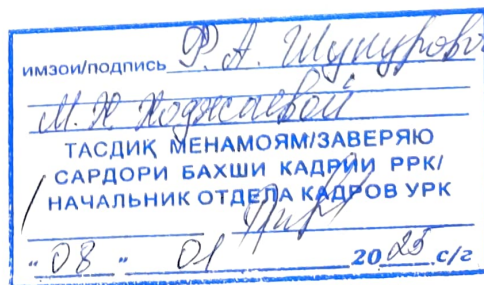 имзои/подпись Р. А. Шукурова
М. Н. Ходжаевой
ТАСДИҚ МЕНАМОЯМ/ЗАВЕРЯЮ
САРДОРИ БАХШИ КАДРИИ РРК/
НАЧАЛЬНИК ОТДЕЛА КАДРОВ УРК
"08" 01 2025 с/г